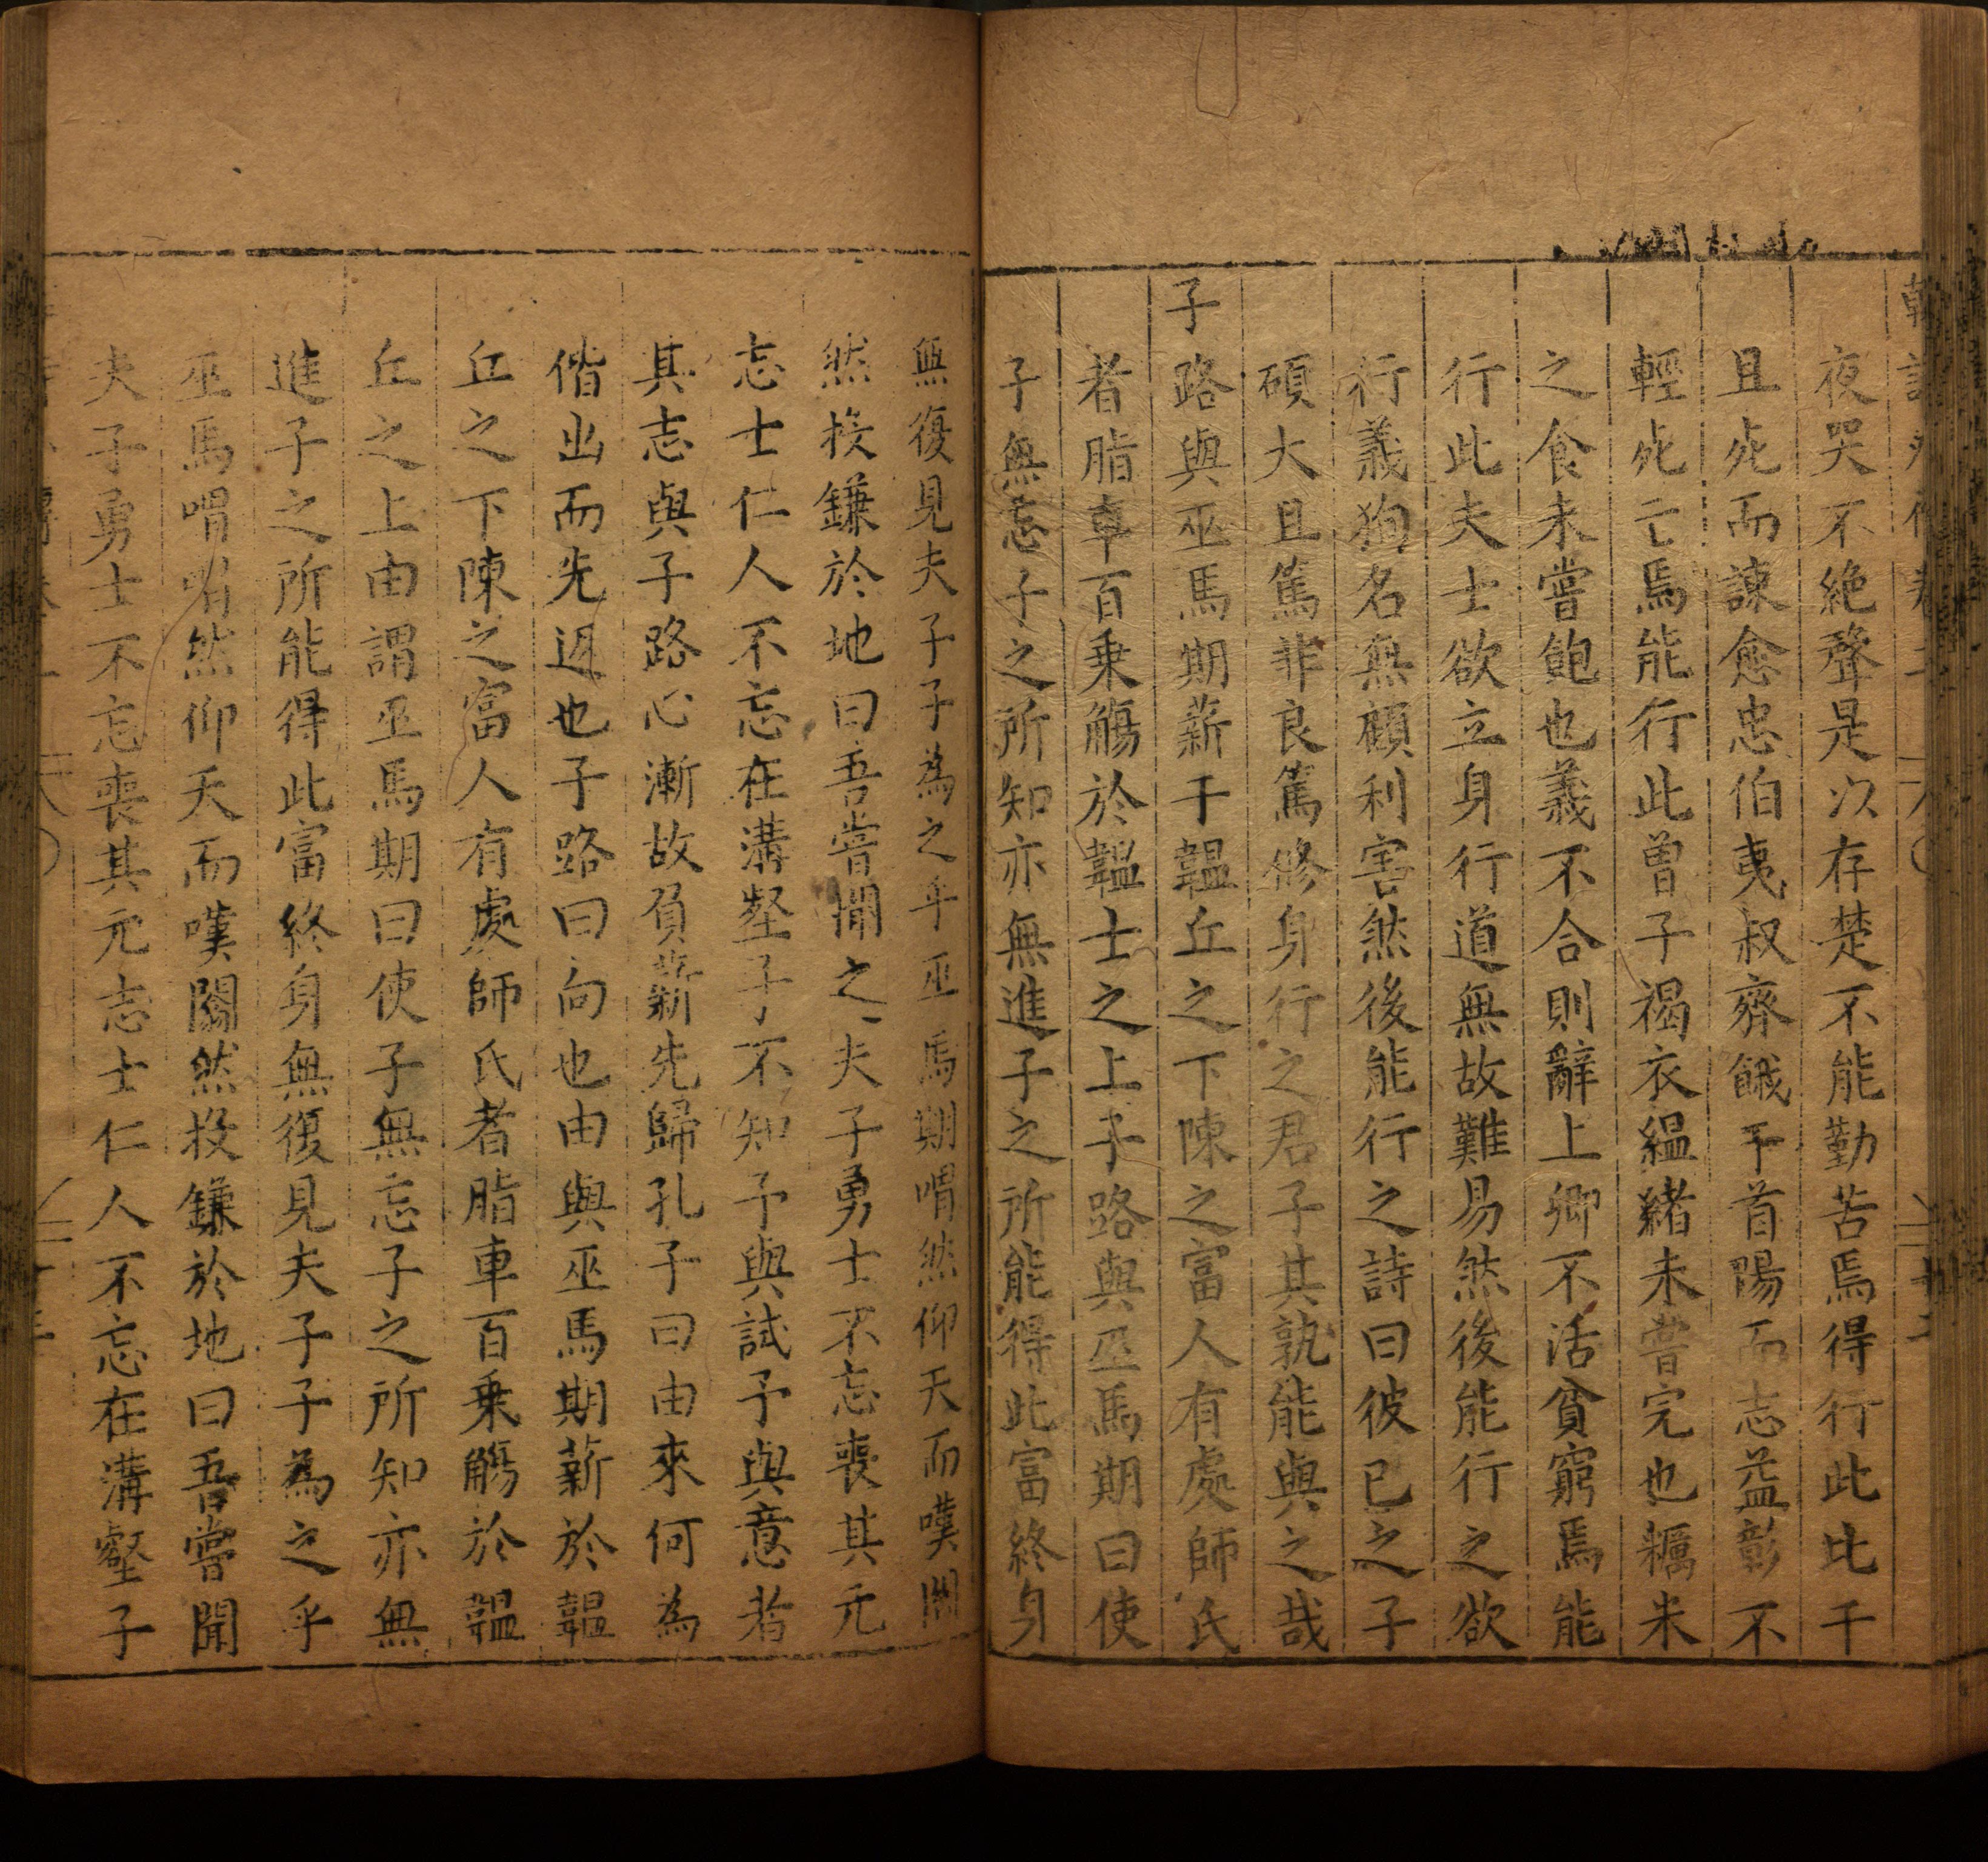 夜哭不絶聲是以存楚不能勤苦焉得行此比干
且死而諫愈忠伯夷叔齊餓于首陽而志益彰不
輕死亡焉能行此曾子褐衣緼緒未嘗完也糲米
之食未嘗飽也義不合則辭上卿不活貧窮焉能
行此夫士欲立身行道無故難易然後能行之欲
行義狥名無顧利害然後能行之詩曰彼已之子
碩大且篤非良篤修身行之君子其孰能與之哉
子路與巫馬期薪于韞丘之下陳之富人有處師氏
者脂車百乗觴於韞士之上子路與巫馬期曰使
子無忘子之所知亦無進子之所能得此富終身
無復見夫子子為之乎巫馬期喟然仰天而嘆闟
然投鎌於地曰吾嘗聞之夫子勇士不忘喪其元
志士仁人不忘在溝壑子不知予與試予與意者
其志與子路心漸故負薪先歸孔子曰由來何為
偕出而先返也子路曰向也由與巫馬期薪於韞
丘之下陳之富人有處師氏者脂車百乗觴於韞
丘之上由謂巫馬期曰使子無忘子之所知亦無
進子之所能得此富終身無復見夫子子為之乎
巫馬喟喟然仰天而嘆闟然投鎌於地曰吾嘗聞
夫子勇士不忘喪其元志士仁人不忘在溝壑子